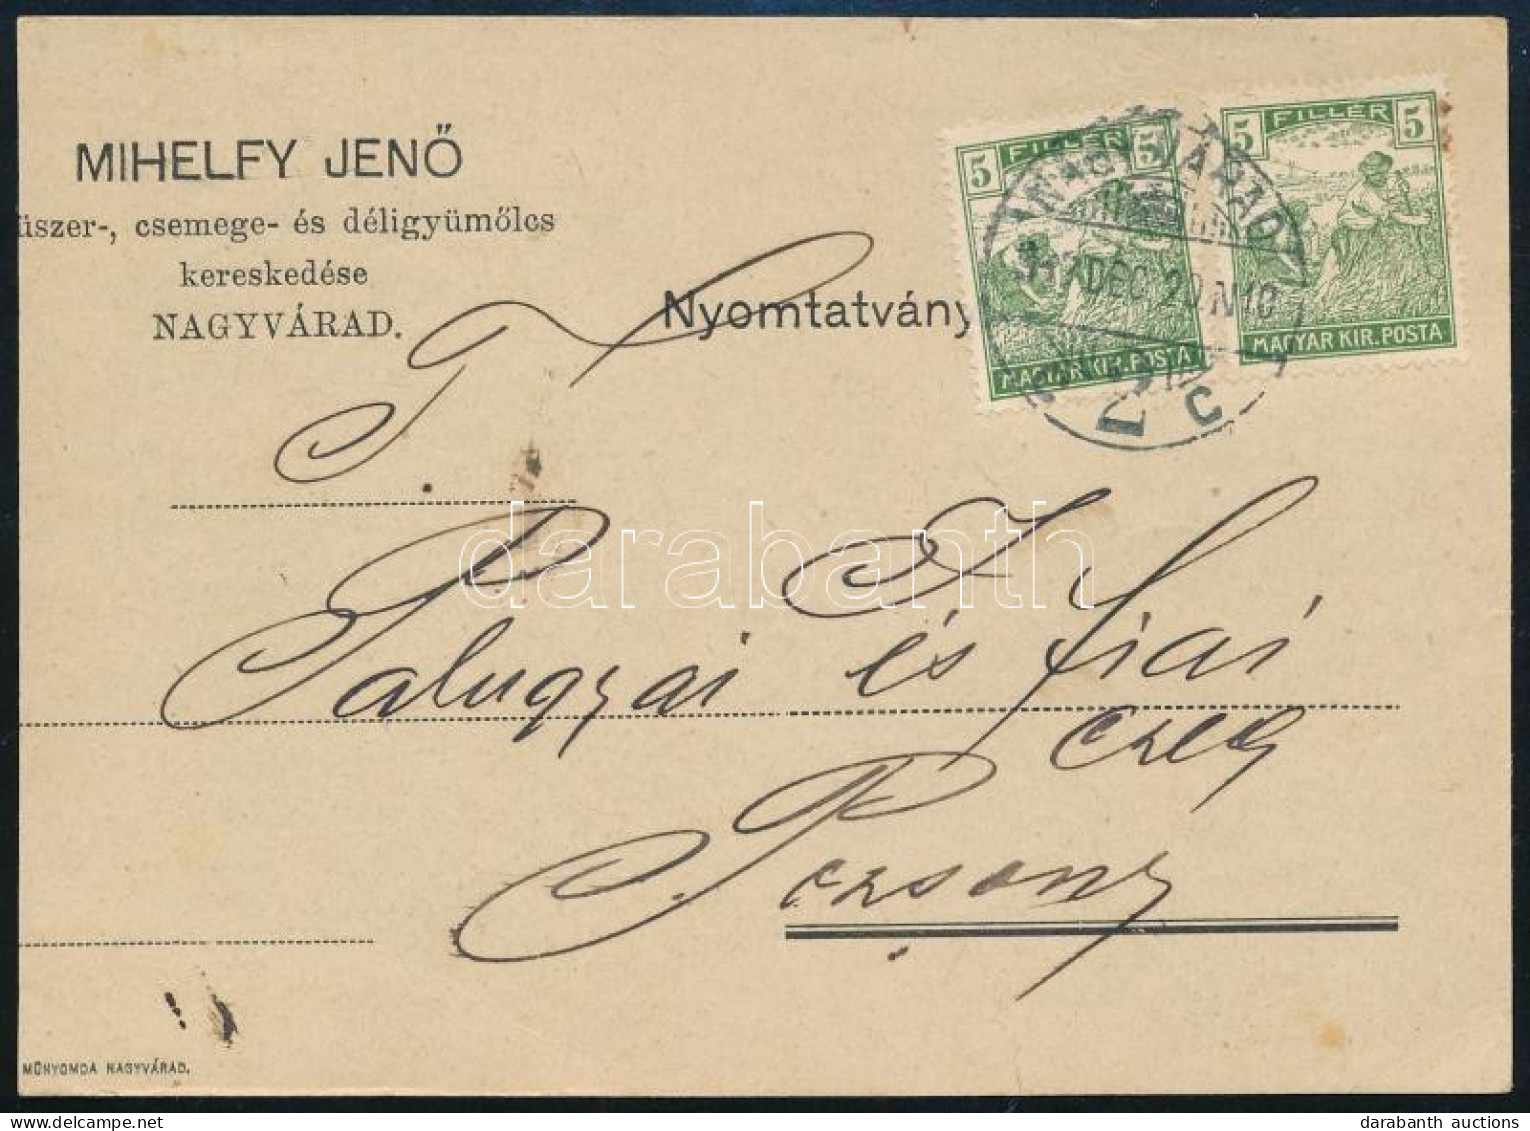 MIHELFY JENŐ
üszer-, csemege- és déligyümölcs
kereskedése
NAGYVÁRAD.
Nyomtatvány
5 FILLÉR 5
MAGYAR KIR. POSTA
5 FILLÉR 5
MAGYAR KIR. POSTA
NAGYVÁRAD
917 DEC 20 N10
C
T.
Palugyai J. és fiai
czég
Pozsony
MŰNYOMDA NAGYVÁRAD.
darabanth
darabanth auctions